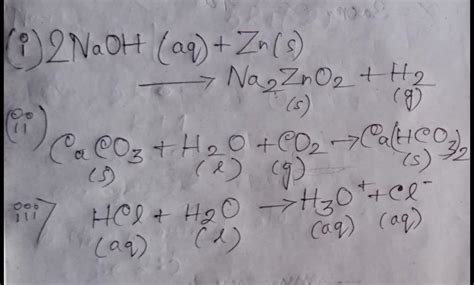 (i) 2NaOH (aq) + Zn(s)
⟶ Na₂ZnO₂ + H₂
(s) (g)
(ii) CaCO₃ + H₂O + CO₂ → Ca(HCO₃)₂
(s) (l) (g) (s)
iii) HCl + H₂O → H₃O⁺ + Cl⁻
(aq) (l) (aq) (aq)